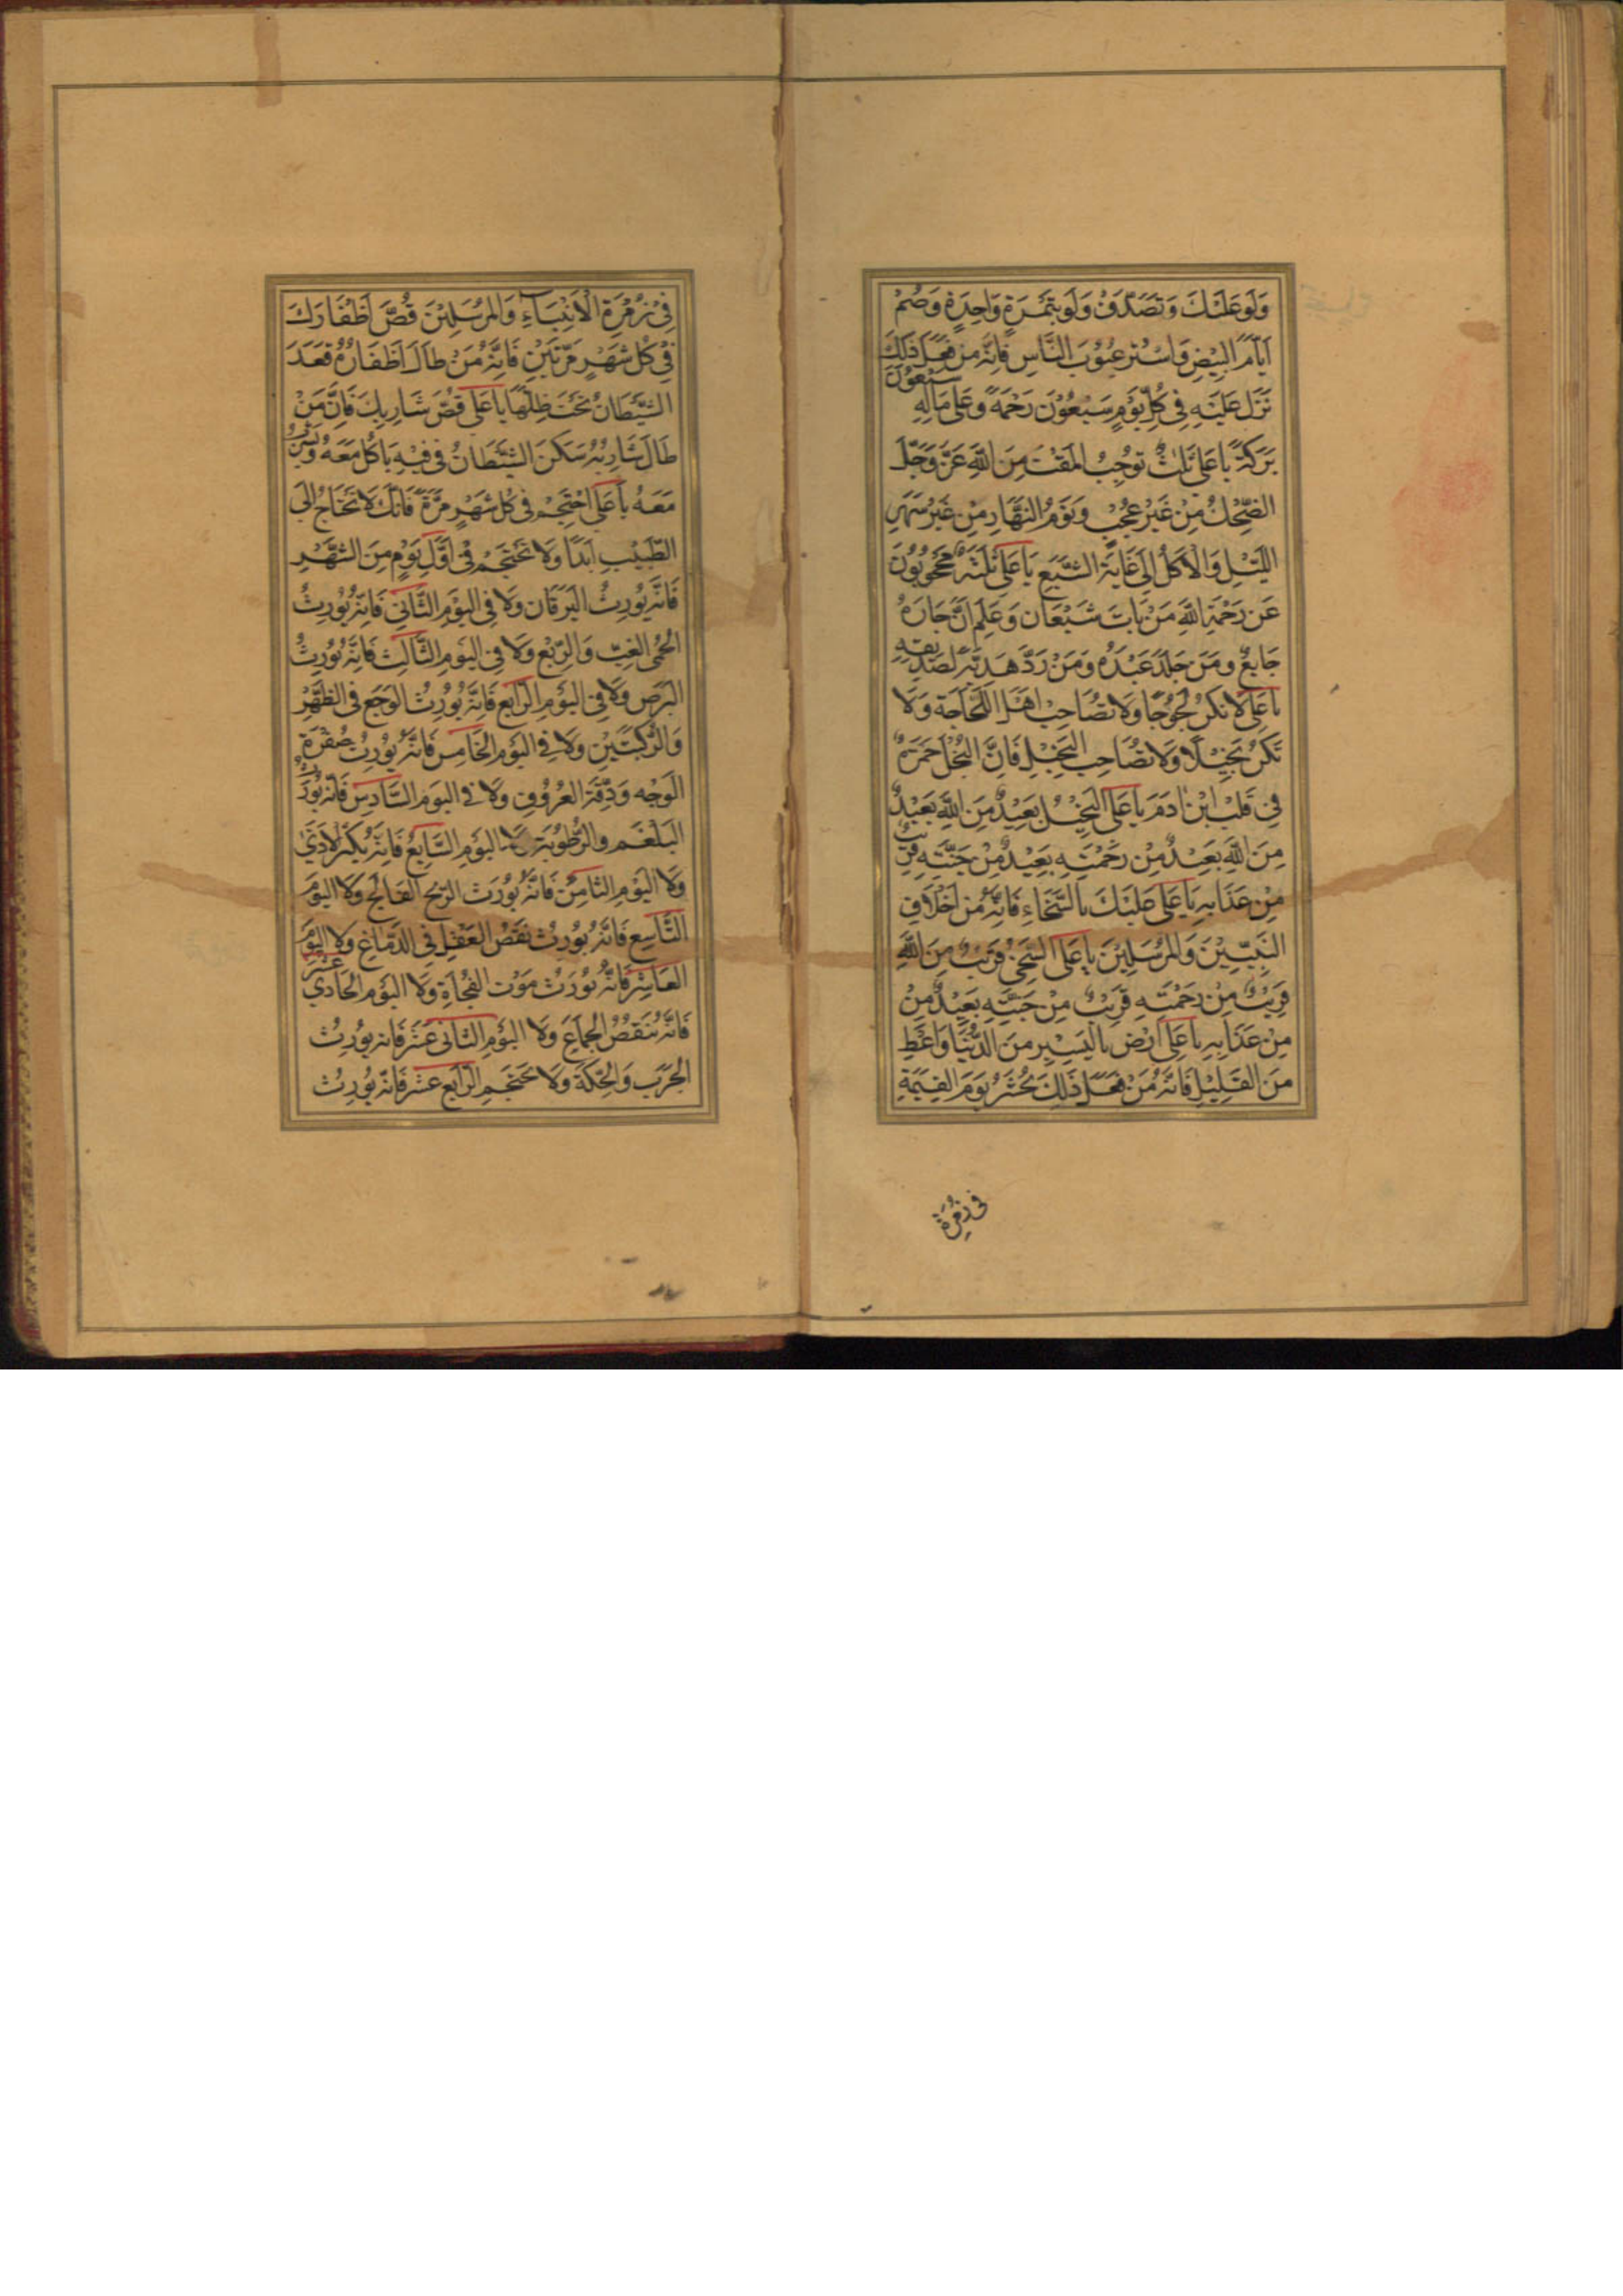 وَلَوْ عَلَيْكَ وَتَصَدَّقْ وَلَوْ بِتَمْرَةٍ وَاحِدَةٍ وَصُمْ
اَيَّامَ الْبِيْضِ وَاسْتُرْ عُيُوْبَ النَّاسِ فَاِنَّهُ مَنْ فَعَلَ ذَلِكَ
نَزَلَ عَلَيْهِ فِي كُلِّ يَوْمٍ سَبْعُوْنَ رَحْمَةً وَعَلَى مَالِهِ سَبْعُوْنَ
بَرَكَةً يَا عَلِي ثَلٰثٌ تُوْجِبُ الْمَقْتَ مِنَ اللّٰهِ عَزَّ وَجَلَّ
الضِّحْكُ مِنْ غَيْرِ عُجْبٍ وَنَوْمُ النَّهَارِ مِنْ غَيْرِ سَهَرِ
اللَّيْلِ وَالْاَكْلُ اِلَى غَايَةِ الشَّبَعِ يَا عَلِي ثَلٰثَةٌ مَحْجُوْبُوْنَ
عَنْ رَحْمَةِ اللّٰهِ مَنْ بَاتَ شَبْعَان وَعَلِمَ اَنَّ جَارَهُ
جَايِعٌ وَمَنْ جَلَدَ عَبْدَهُ وَمَنْ رَدَّ هَدِيَّةً لِصَدِيْقِهِ
يَا عَلِي لَا تَكُنْ لَجُوْجًا وَلَا تُصَاحِبْ اَهْلَ اللَّجَاجَةِ وَلَا
تَكُنْ بَخِيْلًا وَلَا تُصَاحِبِ الْبَخِيْلَ فَاِنَّ الْبُخْلَ جَمْرَةٌ
فِي قَلْبِ ابْنِ اٰدَمَ يَا عَلِي الْبَخِيْلُ بَعِيْدٌ مِنَ اللّٰهِ بَعِيْدٌ
مِنَ اللّٰهِ بَعِيْدٌ مِنْ رَحْمَتِهِ بَعِيْدٌ مِنْ جَنَّتِهِ قَرِيْبٌ
مِنْ عَذَابِهِ يَا عَلِي عَلَيْكَ بِالسَّخَاءِ فَاِنَّهُ مِنْ اَخْلَاقِ
النَّبِيِّيْنَ وَالْمُرْسَلِيْنَ يَا عَلِي السَّخِيُّ قَرِيْبٌ مِنَ اللّٰهِ
قَرِيْبٌ مِنْ رَحْمَتِهِ قَرِيْبٌ مِنْ جَنَّتِهِ بَعِيْدٌ مِنْ
مِنْ عَذَابِهِ يَا عَلِي اَرْض بِالْيَسِيْرِ مِنَ الدُّنْيَا وَاَعْطِ
مِنَ الْقَلِيْلِ فَاِنَّهُ مَنْ فَعَلَ ذَلِكَ يُحْشَرُ يَوْمَ الْقِيٰمَةِ
فِي زُمْرَةِ
فِيْ زُمْرَةِ الْاَنْبِيَاءِ وَالْمُرْسَلِيْنَ قُصَّ اَظْفَارَكَ
فِيْ كُلِّ شَهْرٍ مَرَّتَيْنِ فَاِنَّهُ مَنْ طَالَ اَظْفَارُهُ قَعَدَ
الشَّيْطَانُ تَحْتَ ظِلِّهَا يَا عَلِي قُصَّ شَارِبَكَ فَاِنَّ مَنْ
طَالَ شَارِبُهُ سَكَنَ الشَّيْطَانُ فِي فِيْهِ يَاكُلُ مَعَهُ وَيَشْرَبُ
مَعَهُ يَا عَلِي احْتَجِمْ فِي كُلِّ شَهْرٍ مَرَّةً فَاِنَّكَ لَا تَحْتَاجُ اِلَى
الطَّبِيْبِ اَبَدًا وَلَا تَحْتَجِمْ فِي اَوَّلِ يَوْمٍ مِنَ الشَّهْرِ
فَاِنَّهُ يُوْرِثُ الْيَرَقَان وَلَا فِي الْيَوْمِ الثَّانِي فَاِنَّهُ يُوْرِثُ
الْحُمَّى الْغِبِّ وَالرِّبْعِ وَلَا فِي الْيَوْمِ الثَّالِثِ فَاِنَّهُ يُوْرِثُ
الْبَرَصَ وَلَا فِي الْيَوْمِ الرَّابِعِ فَاِنَّهُ يُوْرِثُ الْوَجَعَ فِي الظَّهْرِ
وَالرُّكْبَتَيْنِ وَلَا فِي الْيَوْمِ الْخَامِسِ فَاِنَّهُ يُوْرِثُ صُفْرَةِ
الْوَجْهِ وَدِقَّةَ الْعُرُوْقِ وَلَا فِي الْيَوْمِ السَّادِسِ فَاِنَّهُ يُوْرِثُ
الْبَلْغَمَ وَالرُّطُوْبَةَ وَلَا الْيَوْمِ السَّابِعُ فَاِنَّهُ يُكْثِرُ الْاَذَيٰ
وَلَا الْيَوْمِ الثَّامِنْ فَاِنَّهُ يُوْرِث الرِّيْحَ الْفَالِجَ وَلَا الْيَوْمَ
التَّاسِعِ فَاِنَّهُ يُوْرِثُ نَقْصُ الْعَقْلِ فِي الدِّمَاغِ وَلَا الْيَوْمَ
الْعَاشِرْ فَاِنَّهُ يُوْرِثْ مَوْتَ الْفُجَاْةِ وَلَا الْيَوْمِ الْحَادِي عَشَرْ
فَاِنَّهُ يُنَقِصُ الْجِمَاعَ وَلَا الْيَوْمِ الثَّانِي عَشَرَ فَاِنَّهُ يُوْرِثُ
الْجَرَبَ وَالْحِكَّةَ وَلَا تَحْتَجِمِ الرَّابِعِ عَشَرَ فَاِنَّهُ يُوْرِثُ